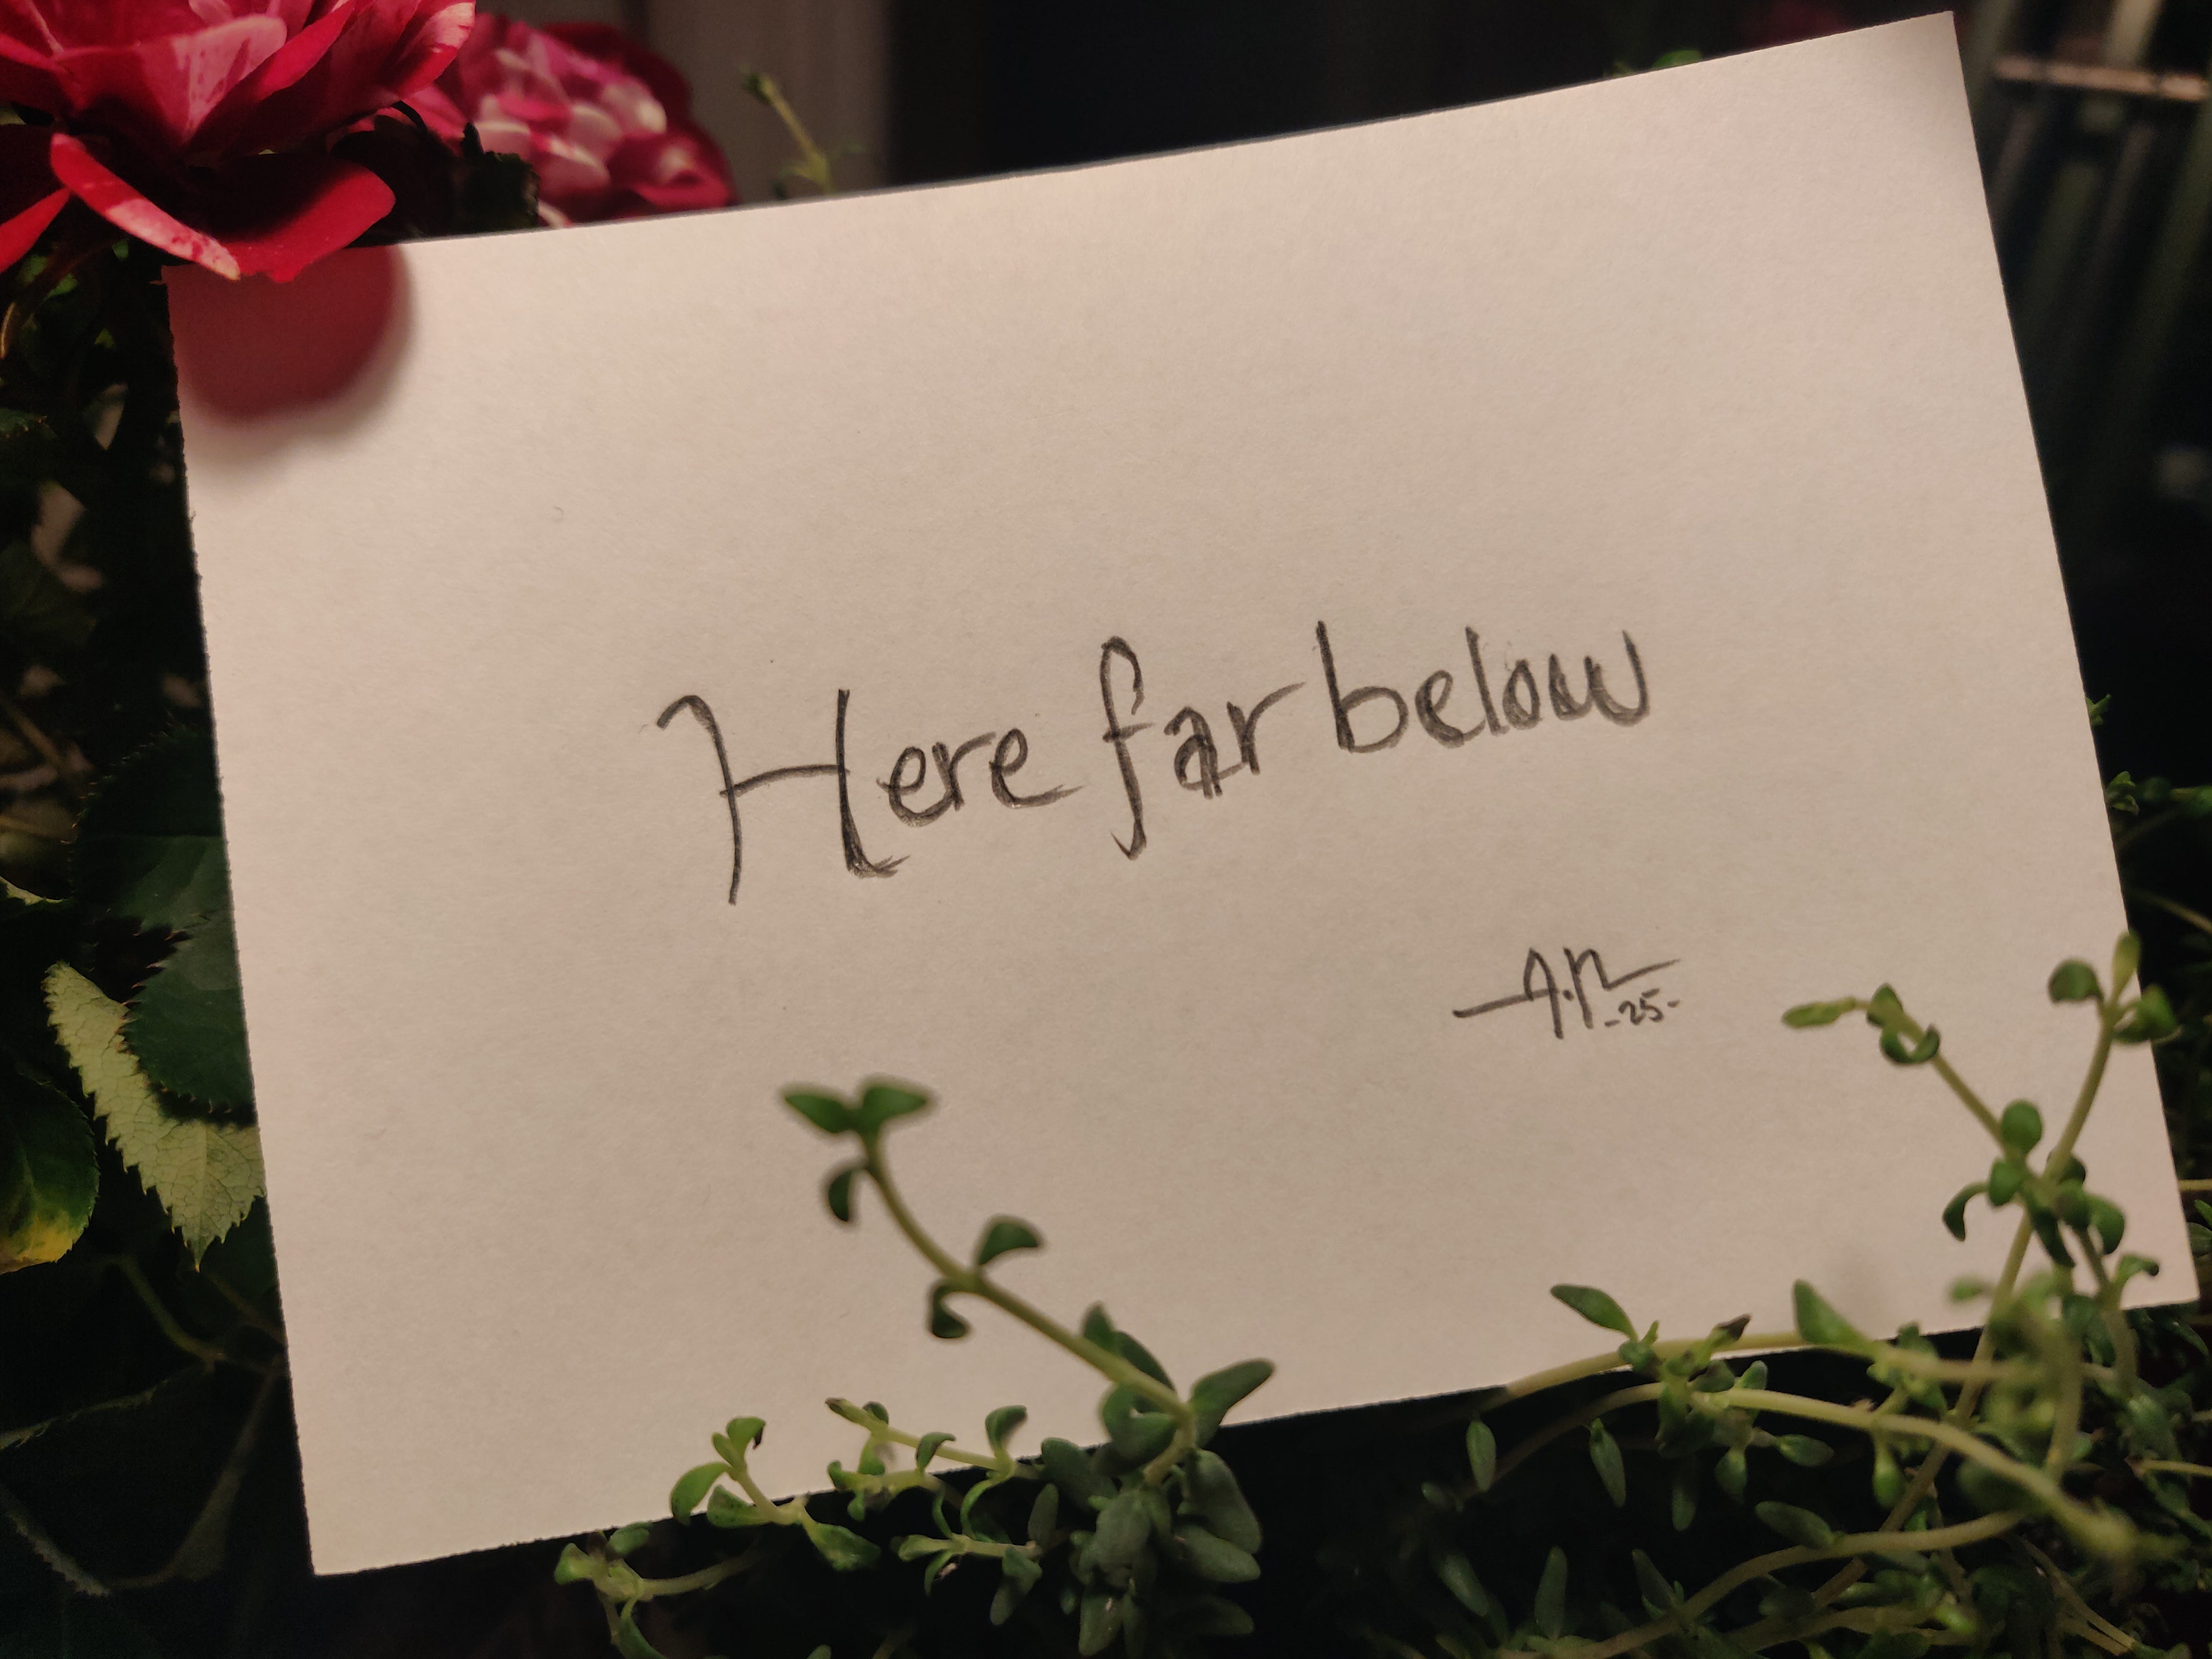 Here far below
A.R
-25-